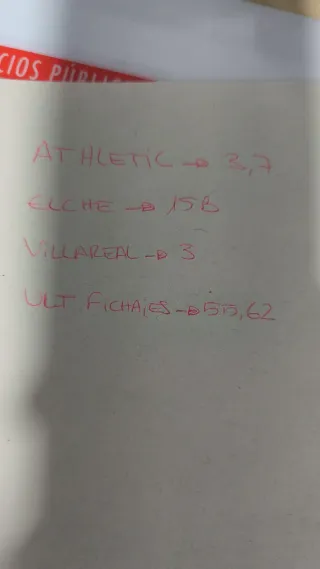 CIOS PÚBLI
ATHLETIC → 3,7
ELCHE → 15B
VILLAREAL → 3
ULT FICHAJES → 55,62